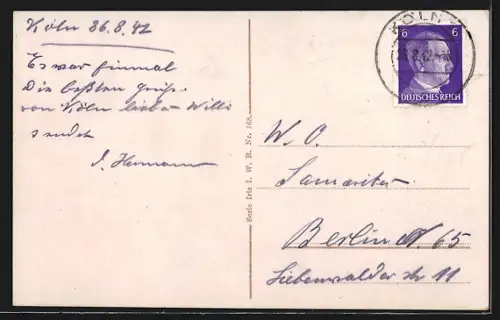 Köln 26.8.42
Es war einmal
Die besten Grüße
von Köln lieber Willi
sendet
J. Hermann
Serie Iris I. W. B. Nr. 168
KÖLN
6 6
DEUTSCHES REICH
W. O.
Samariter
Berlin N 65
Liebenwalder str 11